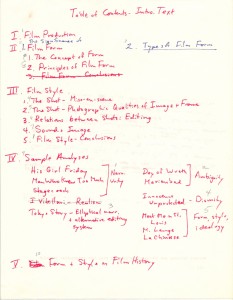 Table of Contents - Intro. Text
I Film Production
The Significance of
II Film Form
1. The Concept of Form
2. Types of Film Form
2. Principles of Film Form
3. Film Form Conclusions
III Film Style
1. The Shot - Mise-en-scene
2. The Shot - Photographic Qualities of Image + Frame
3. Relations Between Shots: Editing
4. Sound + Image
5. Film Style - Conclusions
IV Sample Analyses
His Girl Friday
Man Who Knew Too Much
Stagecoach
Narr. Unity
Day of Wrath
Marienbad
Ambiguity
I Vitelloni - Realism
Innocence Unprotected - Disunity
Tokyo Story - Elliptical narr. + alternative editing system
Meet Me in St. Louis
La Chinoise
Form, style, ideology
V Form + Style in Film History